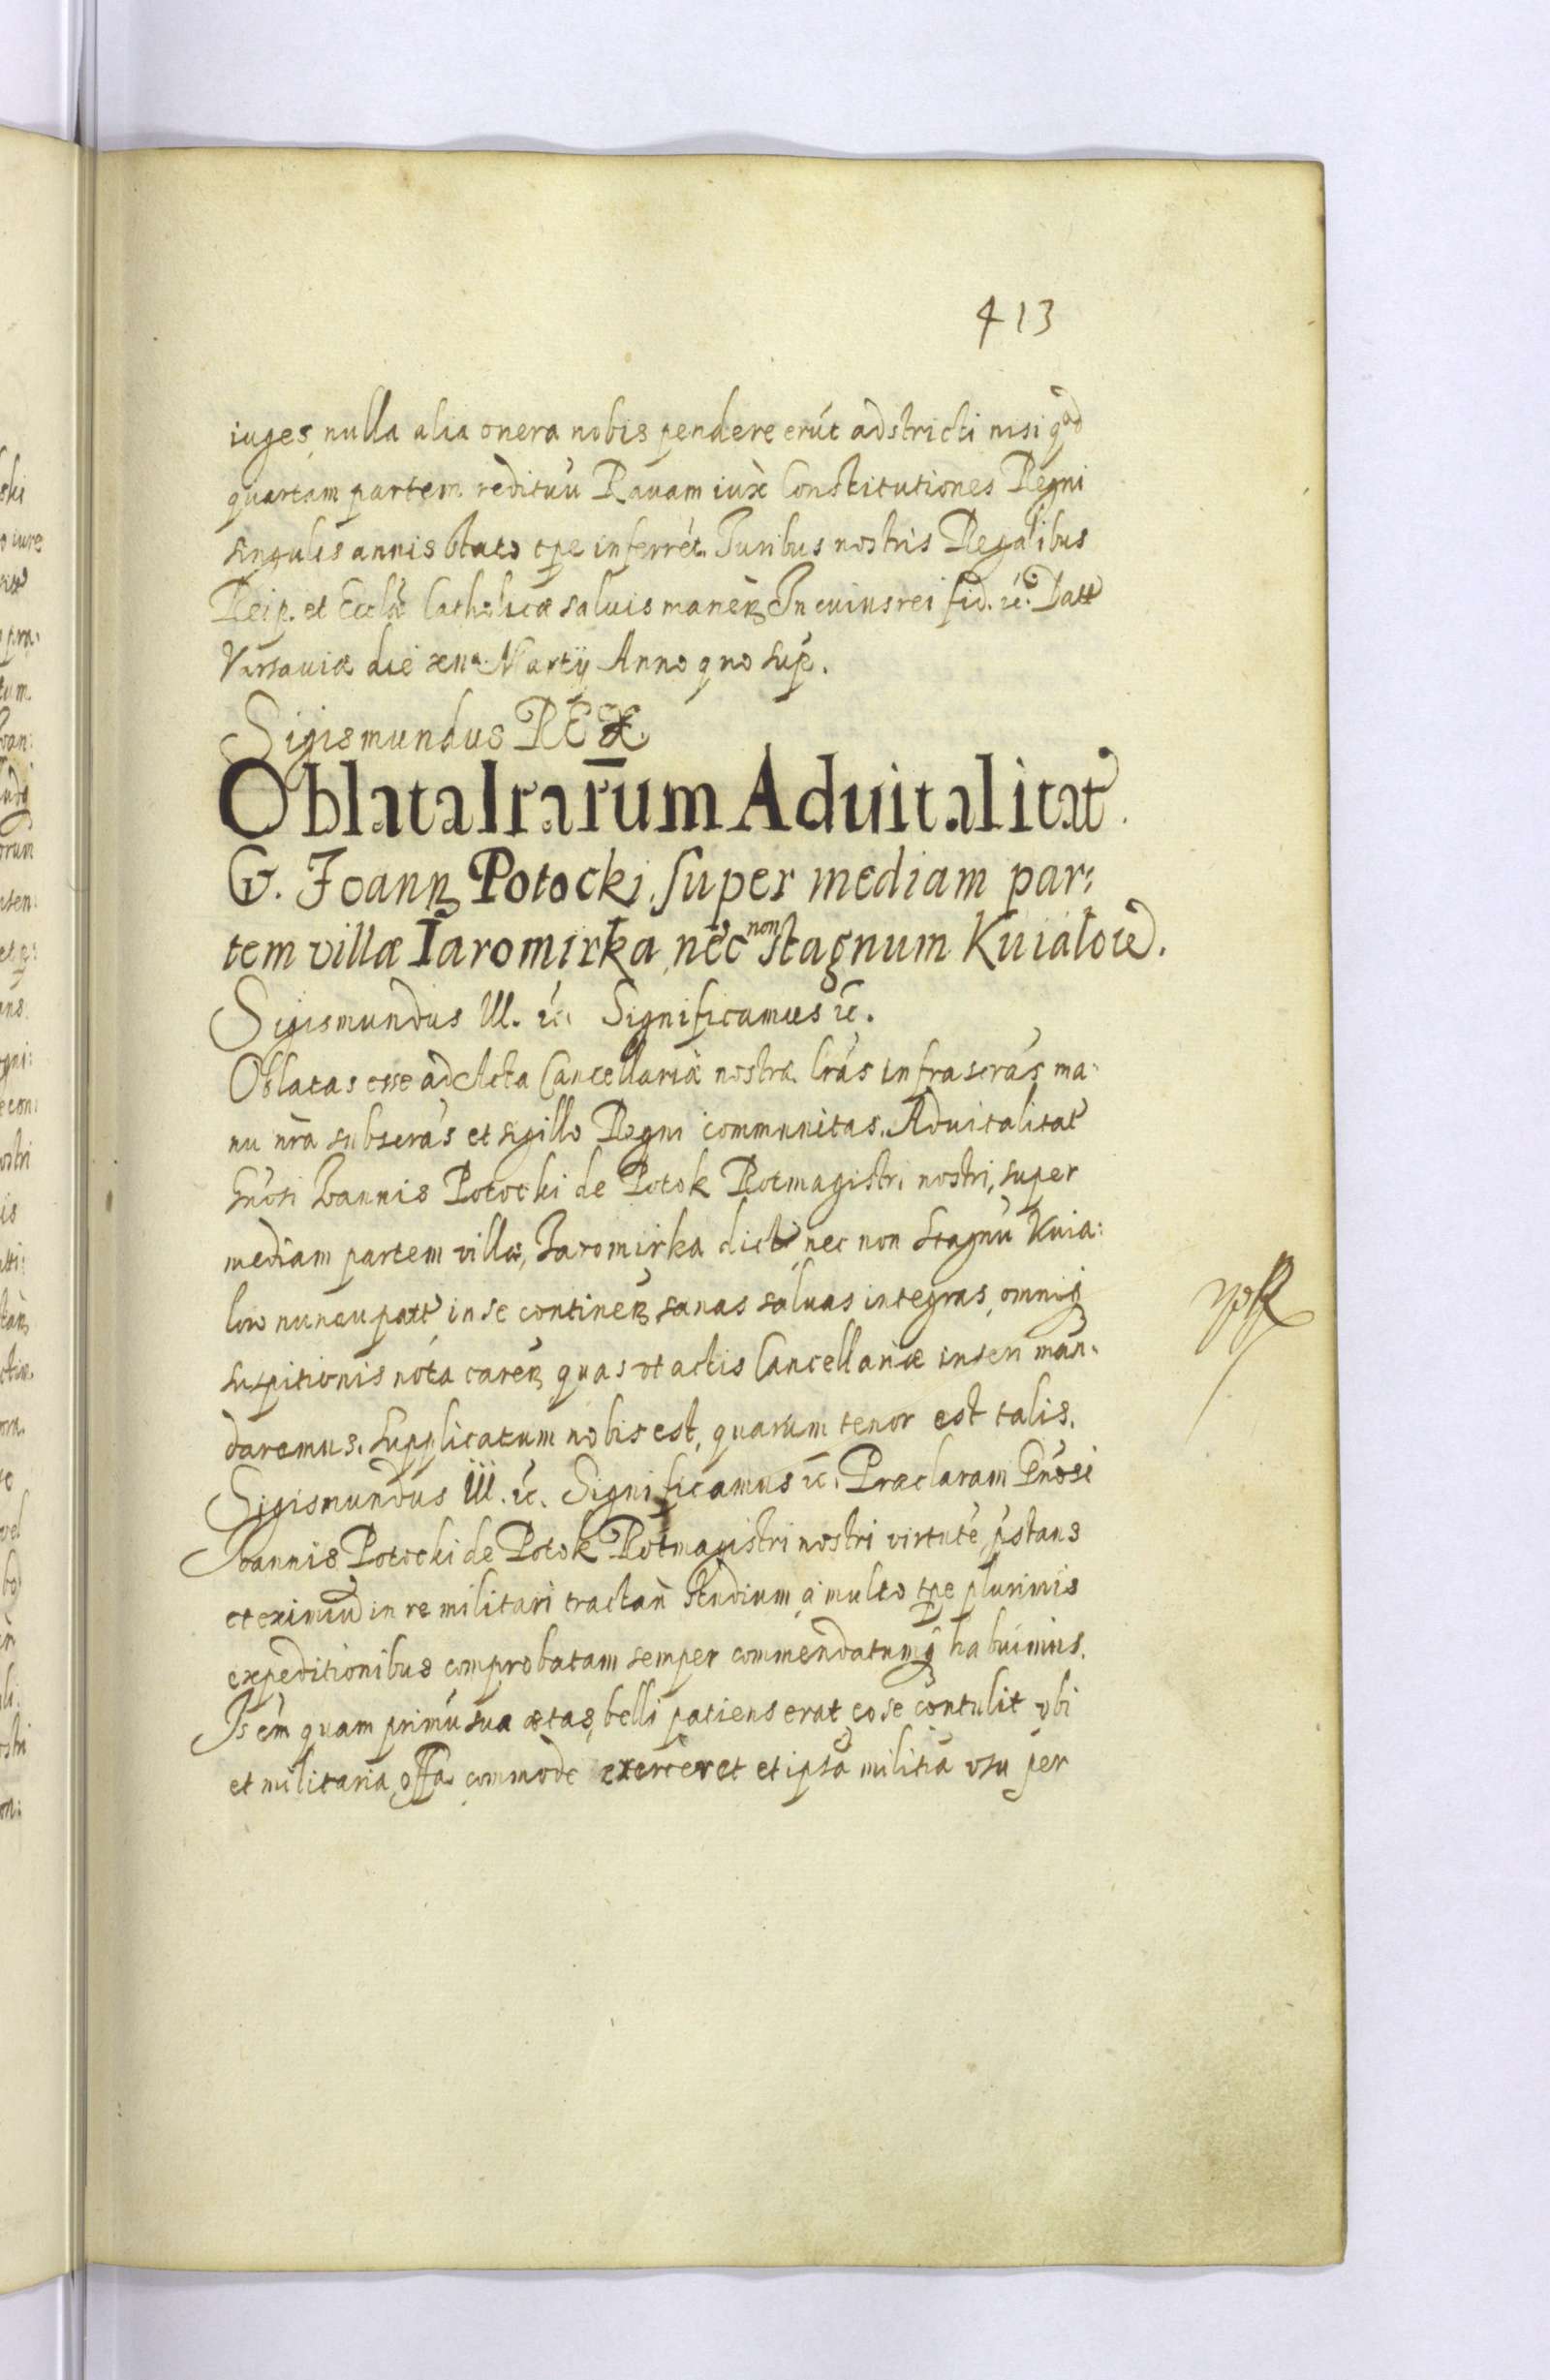 413
iuges nulla alia onera nobis pendere erūt adstricti nisi qd
quartam partem redituū Rauam iux̄ Constitutiones Regni
singulis annis stato tpe inferrēt. Iuribus nostris Regalibus
Reip. et Eccliæ Catholicæ saluis manen. In cuius rei fid. etc. Datt
Varsauiæ die xna Martij Anno quo sup.
Sigismundus REX
Oblata lrārum Aduitalitat.
G. Joann Potocki super mediam par:
tem villæ Iaromirka nec non stagnum Kuialow.
Sigismundus III. etc. Significamus etc.
Oblatas esse ad Acta Cancellariæ nostræ lrās infrascrās ma:
nu nrā subscrās et sigillo Regni communitas. Aduitalitat
Gnosi Ioannis Potocki de Potok Rotmagistri nostri, super
mediam partem villæ, Iaromirka dict nec non Stagnū Kuia:
low nuncupatt in se continen sanas saluas integras omniq
suspitionis nota caren quas vt actis Cancellariæ inseri man:
daremus. Supplicatum nobis est, quarum tenor est talis.
Sigismundus III. etc. Significamus etc. Praeclaram Gnosi
Ioannis Potocki de Potok Rotmagistri nostri virtutē, pstans
et eximiū in re militari tractan studium a multo tpe plurimis
expeditionibus comprobatam semper commendatumq habuimus.
Is em quam primū sua ætas, belli patiens erat eo se contulit vbi
et militaria offa commode exerceret et ipsā militiā vsu per